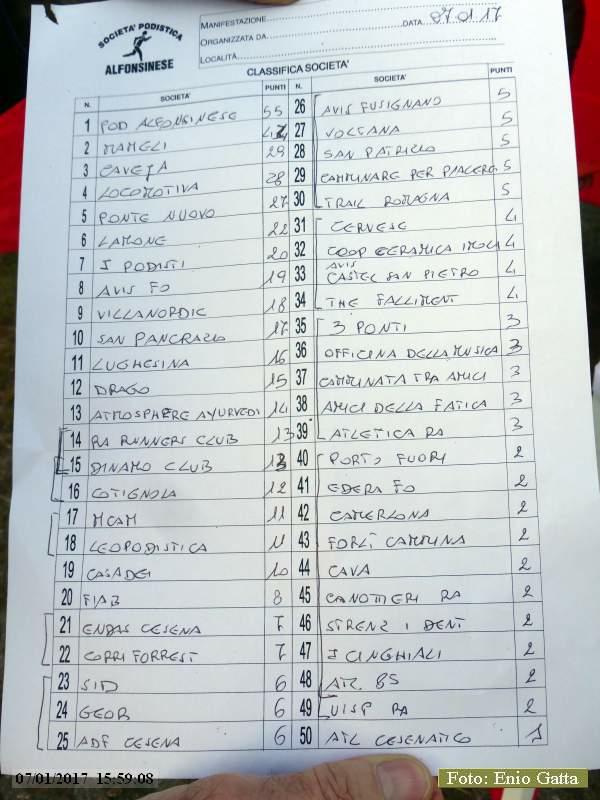 SOCIETÀ PODISTICA
ALFONSINESE
MANIFESTAZIONE
DATA 07.01.17
ORGANIZZATA DA
LOCALITÀ
CLASSIFICA SOCIETA'
N. SOCIETA' PUNTI N. SOCIETA' PUNTI
1 POD ALFONSINESE 55 26 AVIS FUSIGNANO 5
2 MAMELI 27 VOLTANA 5
3 CAVEJA 29 28 SAN PATRIZIO 5
4 LOCOMOTIVA 28 29 CAMMINARE PER PIACERE 5
5 PONTE NUOVO 27 30 TRAIL ROMAGNA 5
6 LAMONE 22 31 CERVESE 4
7 I PODISTI 20 32 COOP CERAMICA IMOLA 4
8 AVIS FO 19 33 AVIS CASTEL SAN PIETRO 4
9 VILLANORDIC 18 34 THE FALLIMENT 4
10 SAN PANCRAZIO 17 35 3 PONTI 3
11 LUGHESINA 16 36 OFFICINA DELLA MUSICA 3
12 DRAGO 15 37 CAMMINATA TRA AMICI 3
13 ATMOSPHERE AYURVEDI 14 38 AMICI DELLA FATICA 3
14 RA RUNNERS CLUB 13 39 ATLETICA RA 3
15 DINAMO CLUB 13 40 PORTO FUORI 2
16 COTIGNOLA 12 41 EDERA FO 2
17 MCAM 11 42 CAMERLONA 2
18 LEOPODISTICA 11 43 FORLÌ CAMMINA 2
19 CASADEI 10 44 CAVA 2
20 FIAB 8 45 CANOTTIERI RA 2
21 ENDAS CESENA 7 46 STRENZ I DENT 2
22 CORRIFORREST 7 47 I CINGHIALI 2
23 SID 6 48 ATL 85 2
24 GEOB 6 49 UISP RA 2
25 ADF CESENA 6 50 ATL CESENATICO 1
07/01/2017 15:59:08
Foto: Enio Gatta